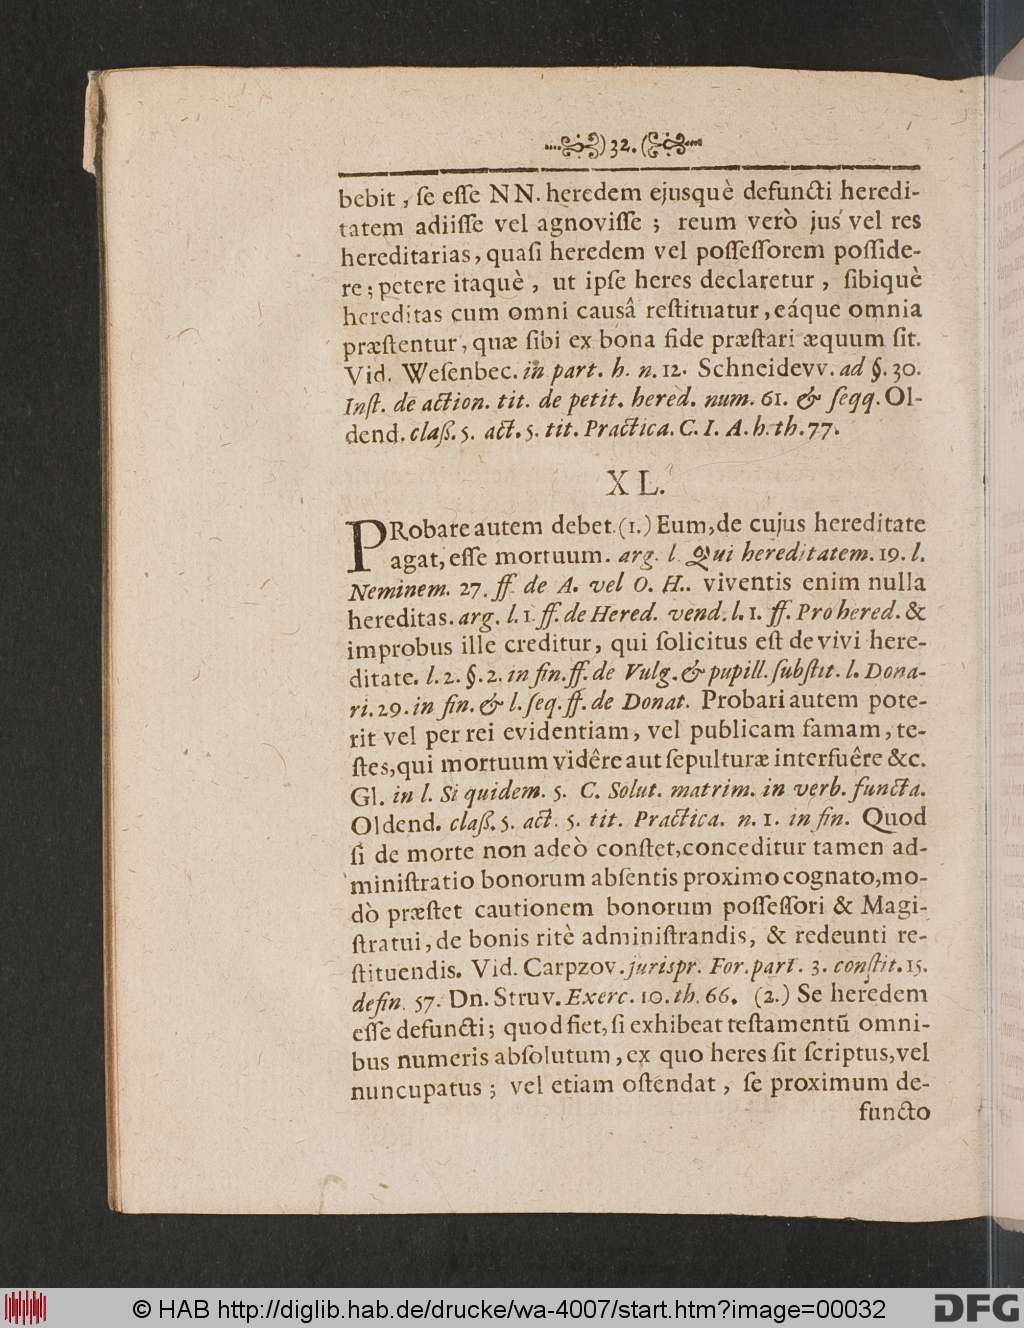 )32.(
bebit, ſe eſſe NN. heredem ejusquè defuncti heredi-
tatem adiiſſe vel agnoviſſe; reum verò jus vel res
hereditarias, quaſi heredem vel poſſeſſorem poſſide-
re; petere itaquè, ut ipſe heres declaretur, ſibiquè
hereditas cum omni causâ reſtituatur, eáque omnia
præſtentur, quæ ſibi ex bona fide præſtari æquum ſit.
Vid. Weſenbec. in part. h. n. 12. Schneidevv. ad §. 30.
Inſt. de action. tit. de petit. hered. num. 61. & ſeqq. Ol-
dend. claſſ. 5. act. 5. tit. Practica. C. I. A. h. th. 77.
XL.
PRobare autem debet (1.) Eum, de cujus hereditate
agat, eſſe mortuum. arg. l. Qui hereditatem. 19. l.
Neminem. 27. ff. de A. vel O. H.. viventis enim nulla
hereditas. arg. l. 1. ff. de Hered. vend. l. 1. ff. Pro hered. &
improbus ille creditur, qui ſolicitus eſt de vivi here-
ditate. l. 2. §. 2. in fin. ff. de Vulg. & pupill. ſubſtit. l. Dona-
ri. 29. in fin. & l. ſeq. ff. de Donat. Probari autem pote-
rit vel per rei evidentiam, vel publicam famam, te-
ſtes, qui mortuum vidêre aut ſepulturæ interfuêre &c.
Gl. in l. Si quidem. 5. C. Solut. matrim. in verb. functa.
Oldend. claſſ. 5. act. 5. tit. Practica. n. 1. in fin. Quod
ſi de morte non adeò conſtet, conceditur tamen ad-
miniſtratio bonorum abſentis proximo cognato, mo-
dò præſtet cautionem bonorum poſſeſſori & Magi-
ſtratui, de bonis ritè adminiſtrandis, & redeunti re-
ſtituendis. Vid. Carpzov. jurispr. For. part. 3. conſtit. 15.
defin. 57. Dn. Struv. Exerc. 10. th. 66. (2.) Se heredem
eſſe defuncti; quod fiet, ſi exhibeat teſtamentū omni-
bus numeris abſolutum, ex quo heres ſit ſcriptus, vel
nuncupatus; vel etiam oſtendat, ſe proximum de-
functo
© HAB http://diglib.hab.de/drucke/wa-4007/start.htm?image=00032
DFG